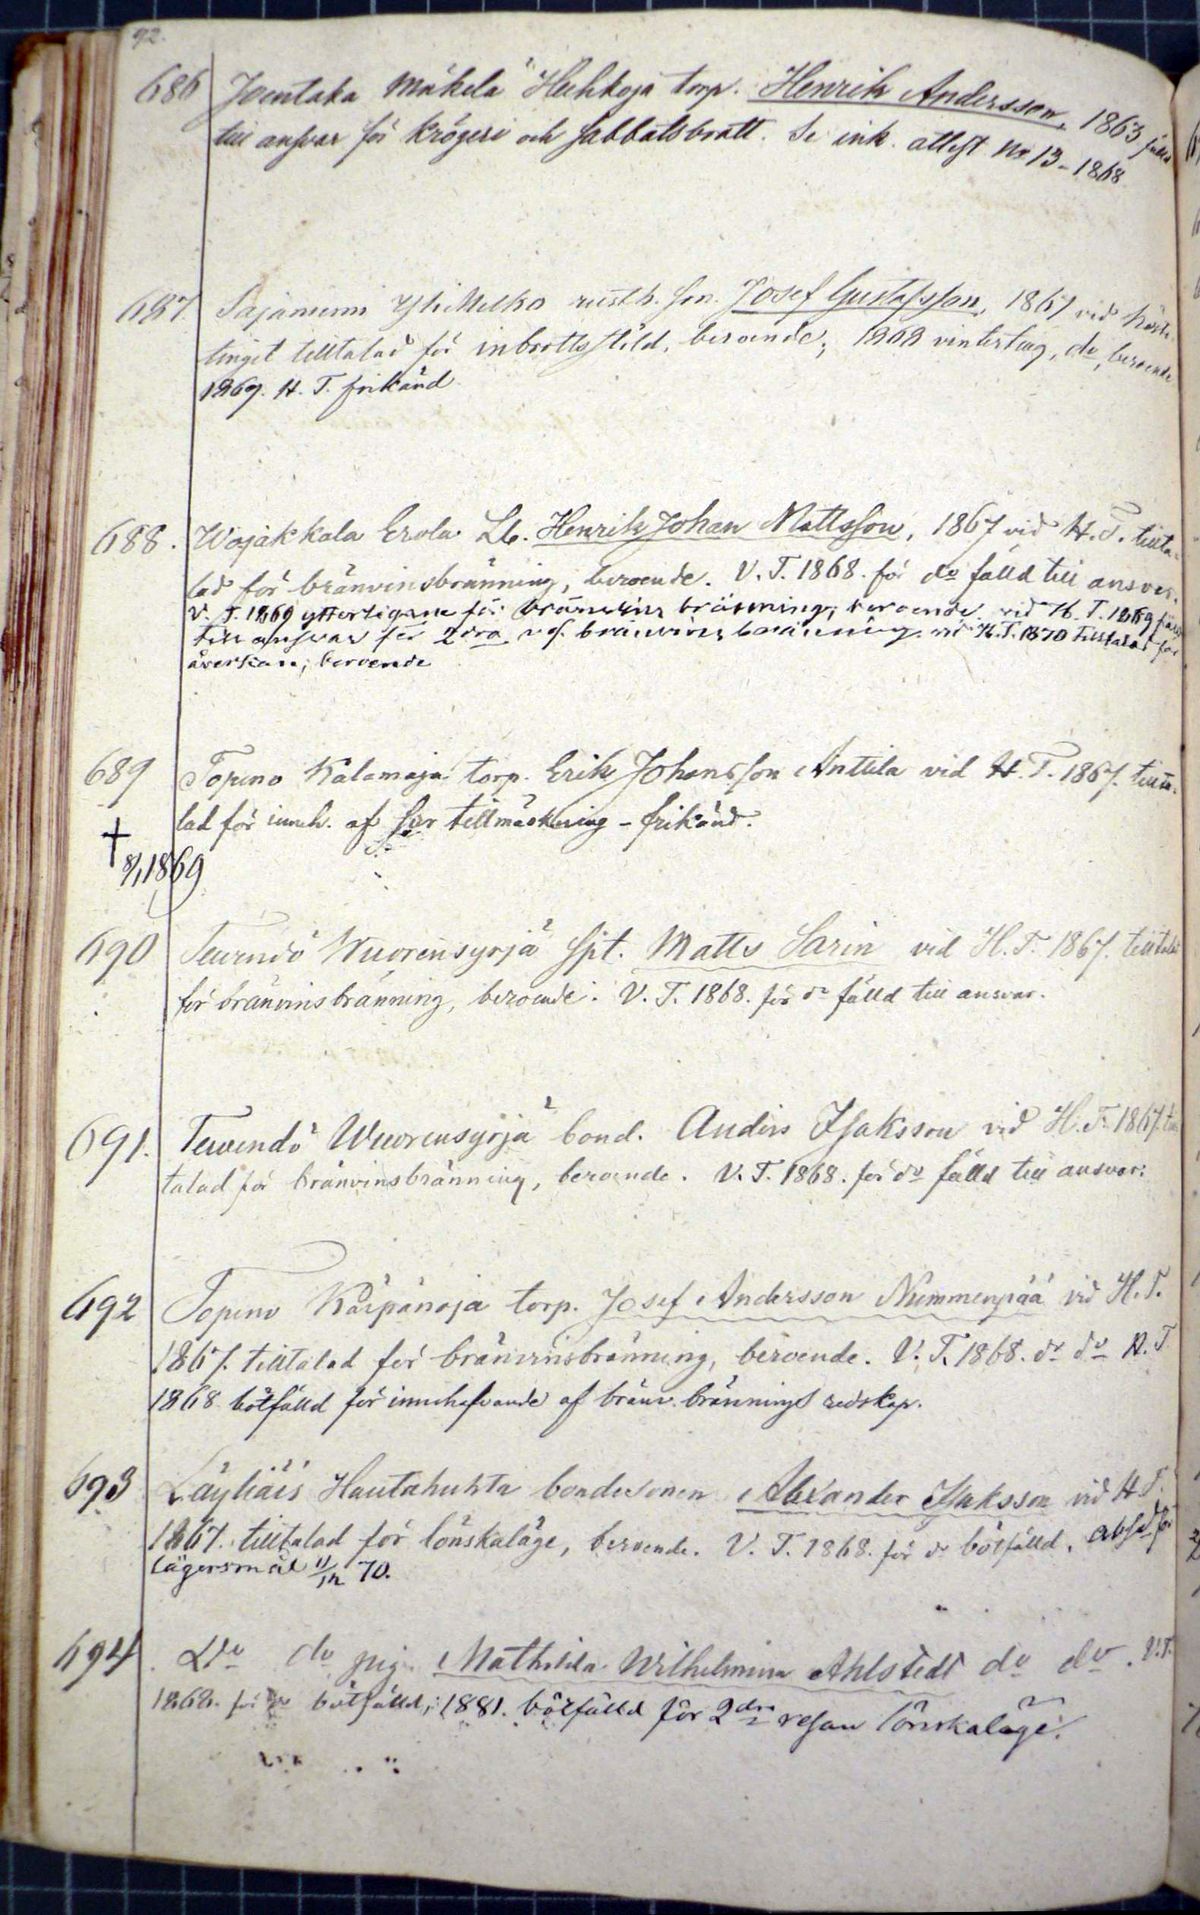 92.
686 Joentaka Mäkelä Huhkoja torp. Henrik Andersson, 1863 fälld
till ansvar för krögeri och sabbatsbrott. Se ink. attest No 13 - 1868
687 Sajaniemi Yli Melko rusth. son. Josef Gustafsson, 1867 vid höste
tinget tilltalad för inbrottsstöld, beroende; 1868 vinterting, do, beroende
1869. H. T. frikänd
688. Wojakkala Erola Lb. Henrik Johan Mattsson, 1867 vid H. T. tillta-
lad för bränvinsbränning, beroende. V. T. 1868. för do fälld till ansvar.
V. T. 1869 ytterligare för bränvins bränning; beroende vid H. T. 1869 fälld
till ansvar för 2dra res. bränvins bränning. vid H. T. 1870 tilltalad för
åverkan; beroende
689 Topeno Kalamaja torp. Erik Johansson Anttila vid H. T. 1867. tillta-
lad för inneh. af för tillmäskning - frikänd.
† 8/1 1869
690 Teurndö Wuorensyrjä spt. Matts Sarin vid H. T. 1867. tilltalad
för bränvinsbränning, beroende. V. T. 1868. för do fälld till ansvar.
691. Teurndö Wuorensyrjä bond. Anders Isaksson vid H. T. 1867. till
talad för bränvinsbränning, beroende. V. T. 1868. för do fälld till ansvar.
692 Topeno Kärpänoja torp. Josef Andersson Nummenpää vid H. T.
1867. tilltalad för bränvinsbränning, beroende. V. T. 1868. do do H. T
1868 bötfälld för innehafvande af bränv. brännings redskap.
693 Läyliäis Hautahuhta bondesonen Alexander Isaksson vid H T.
1867. tilltalad för lönskaläge, beroende. V. T. 1868. för do bötfälld. absol för
lägersmål 11/12 70.
694 Do do pig. Mathilda Wilhelmina Ahlstedt do do. V. T.
1868. för do bötfälld; 1881. bötfälld för 2dra resan lönskaläge.